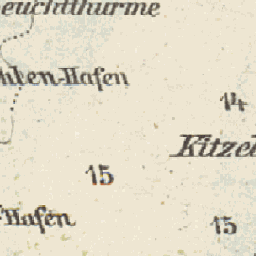 euchtthürme
hlen-Hafen
14
Kitzel
15
Hafen
15